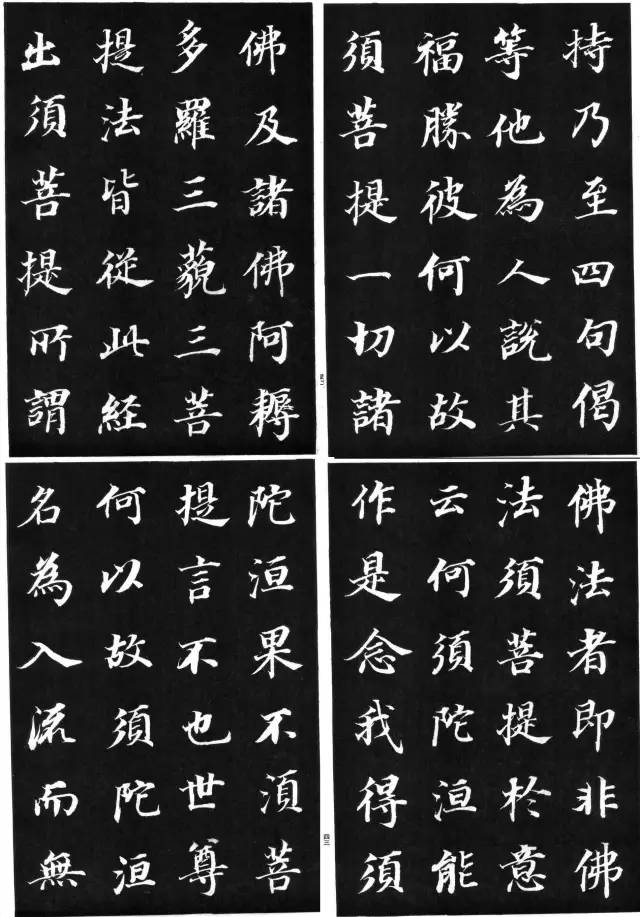 持乃至四句偈
等他為人說其
福勝彼何以故
須菩提一切諸
佛及諸佛阿耨
多羅三藐三菩
提法皆從此経
出須菩提所謂
佛法者即非佛
法須菩提於意
云何須陀洹能
作是念我得須
陀洹果不須菩
提言不也世尊
何以故須陀洹
名為入流而無
四三